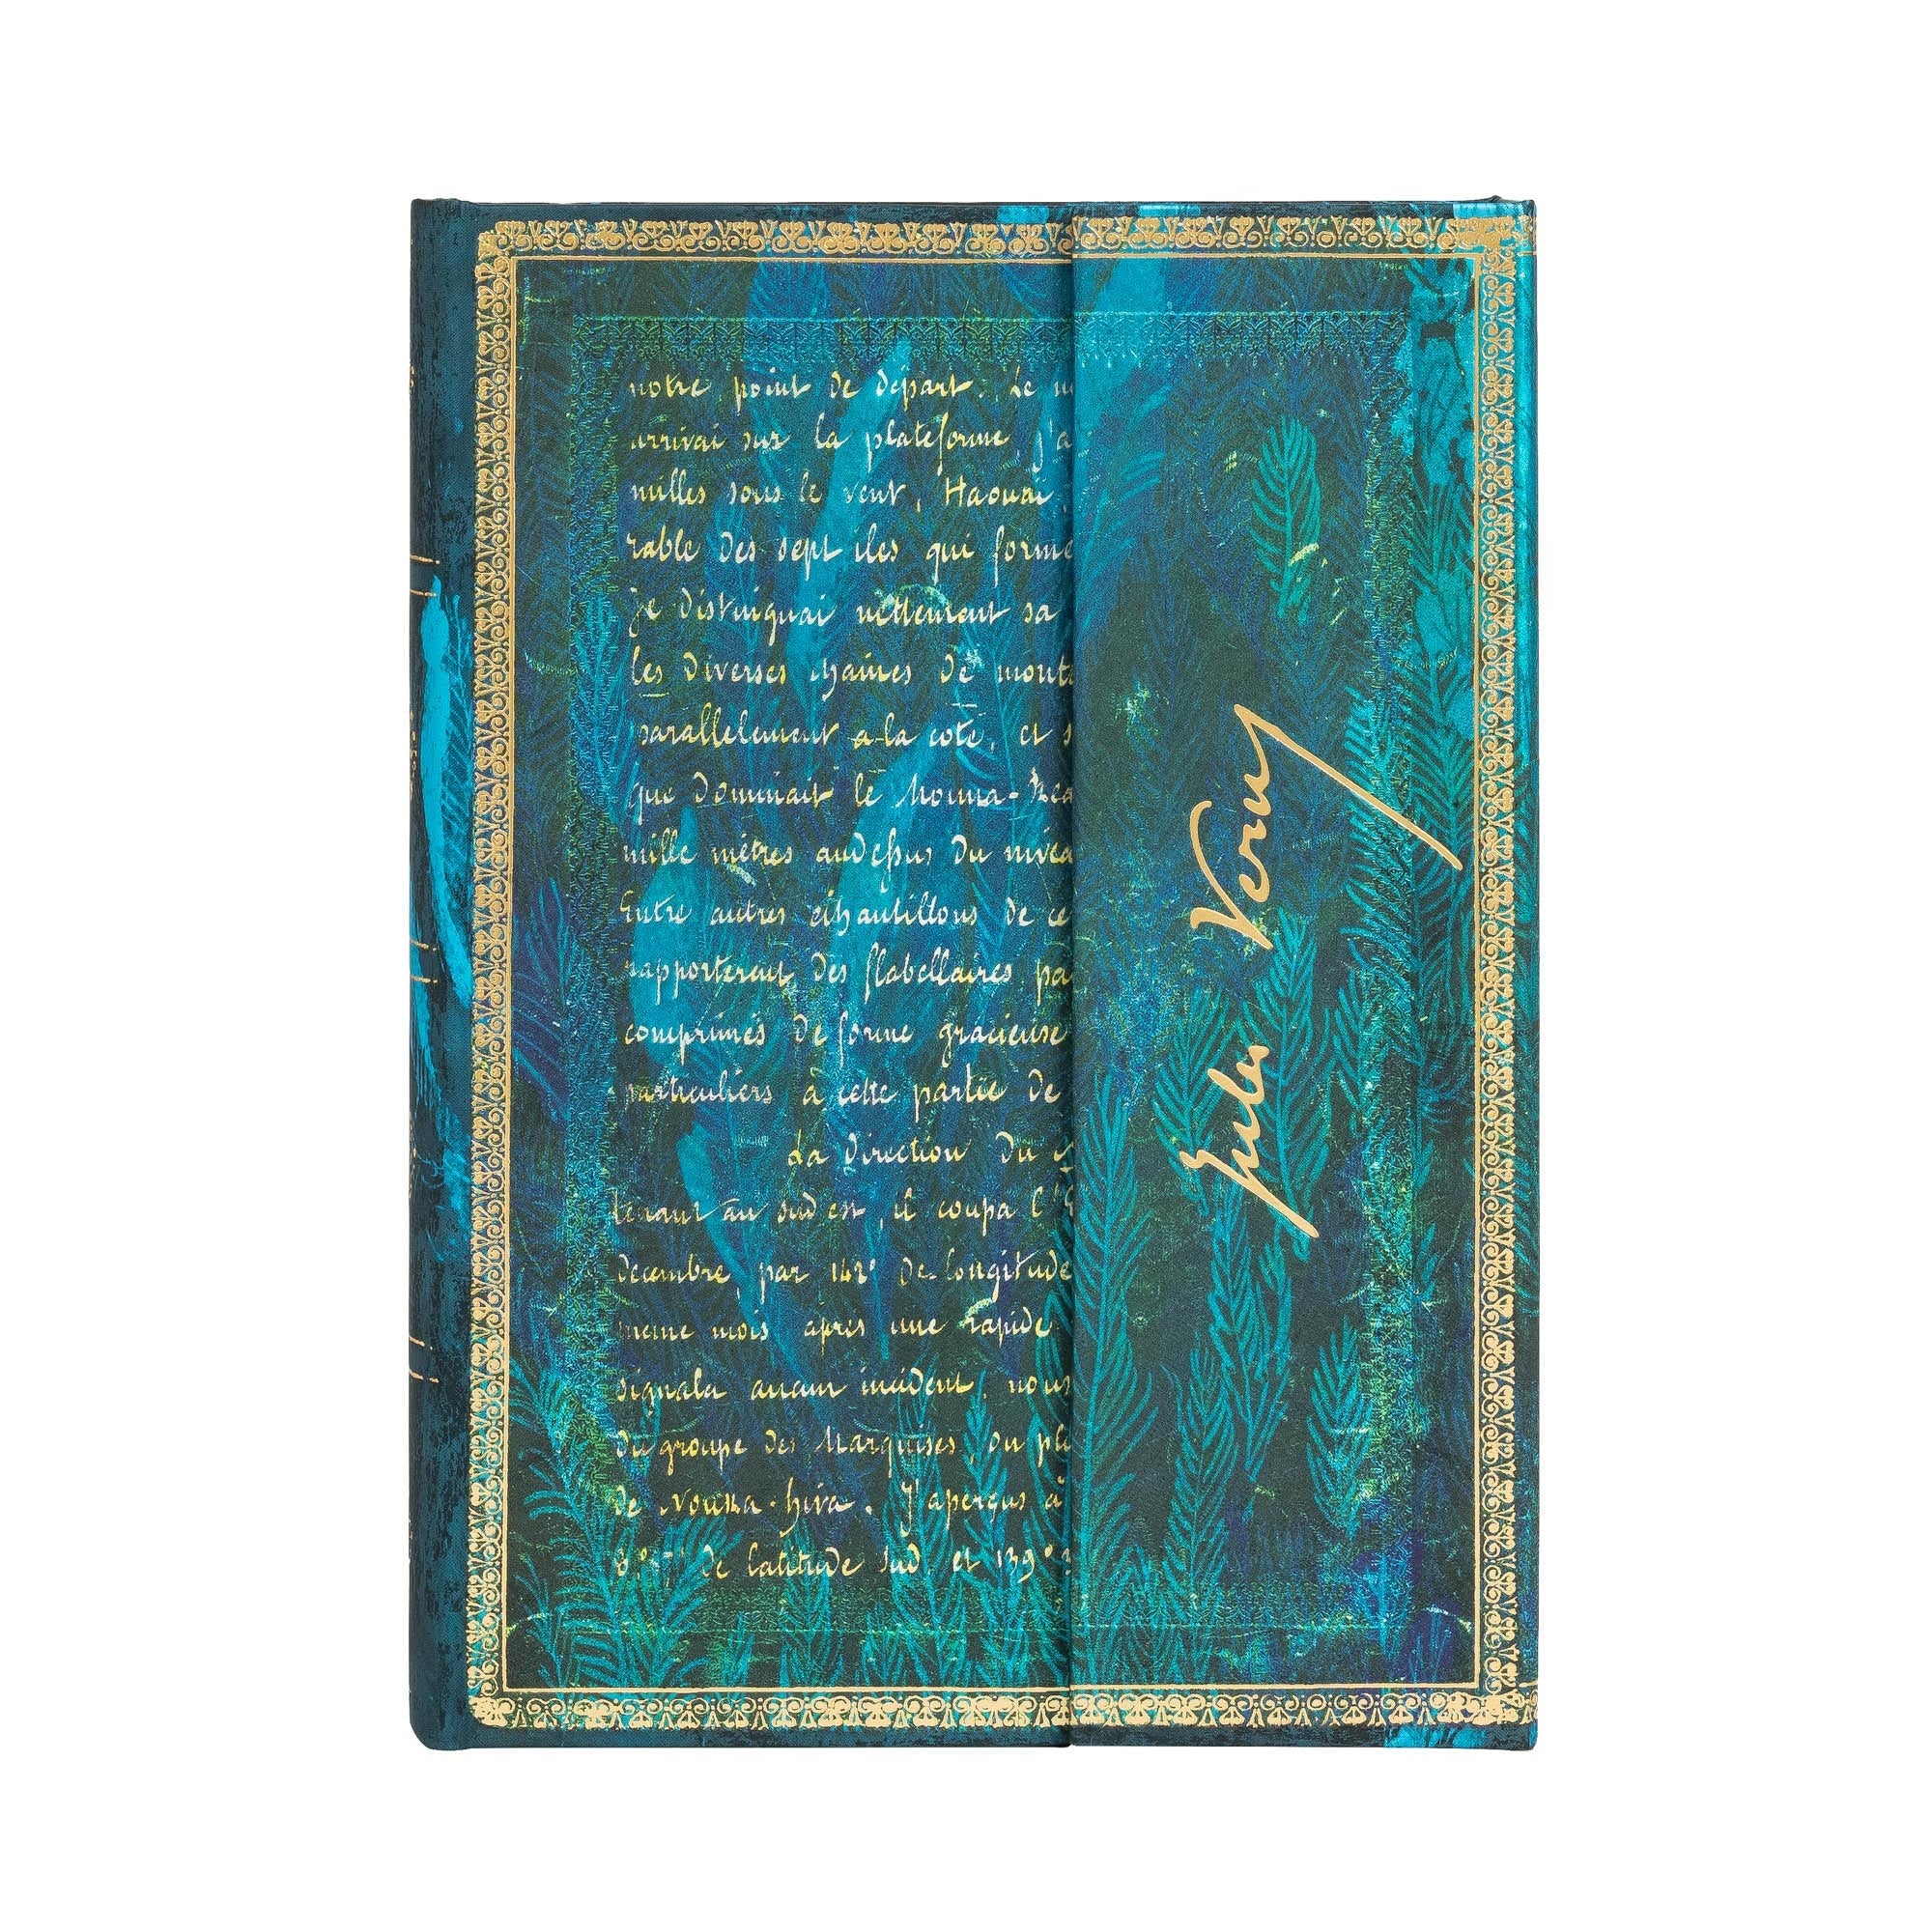 notre point de départ. Le
arrivai sur la plateforme, j'a
milles sous le vent, Haouai,
rable des sept iles qui forme
Je distinguai nettement sa
les diverses chaines de monta
parallelement a la cote, et s
que dominait le Mouna-Rea
mille mètres audessus du nivea
Entre autres échantillons de ce
rapporterent des flabellaires pa
comprimés de forme gracieuse
particuliers à cette partie de
La direction du
tenant au sud est, il coupa l'
décembre, par 142° de longitude
meme mois après une rapide
signala aucun incident, nous
du groupe des Marquises, ou pl
de Nouka-hiva. J'aperçus à
de latitude sud, et 139°3
Jules Verne